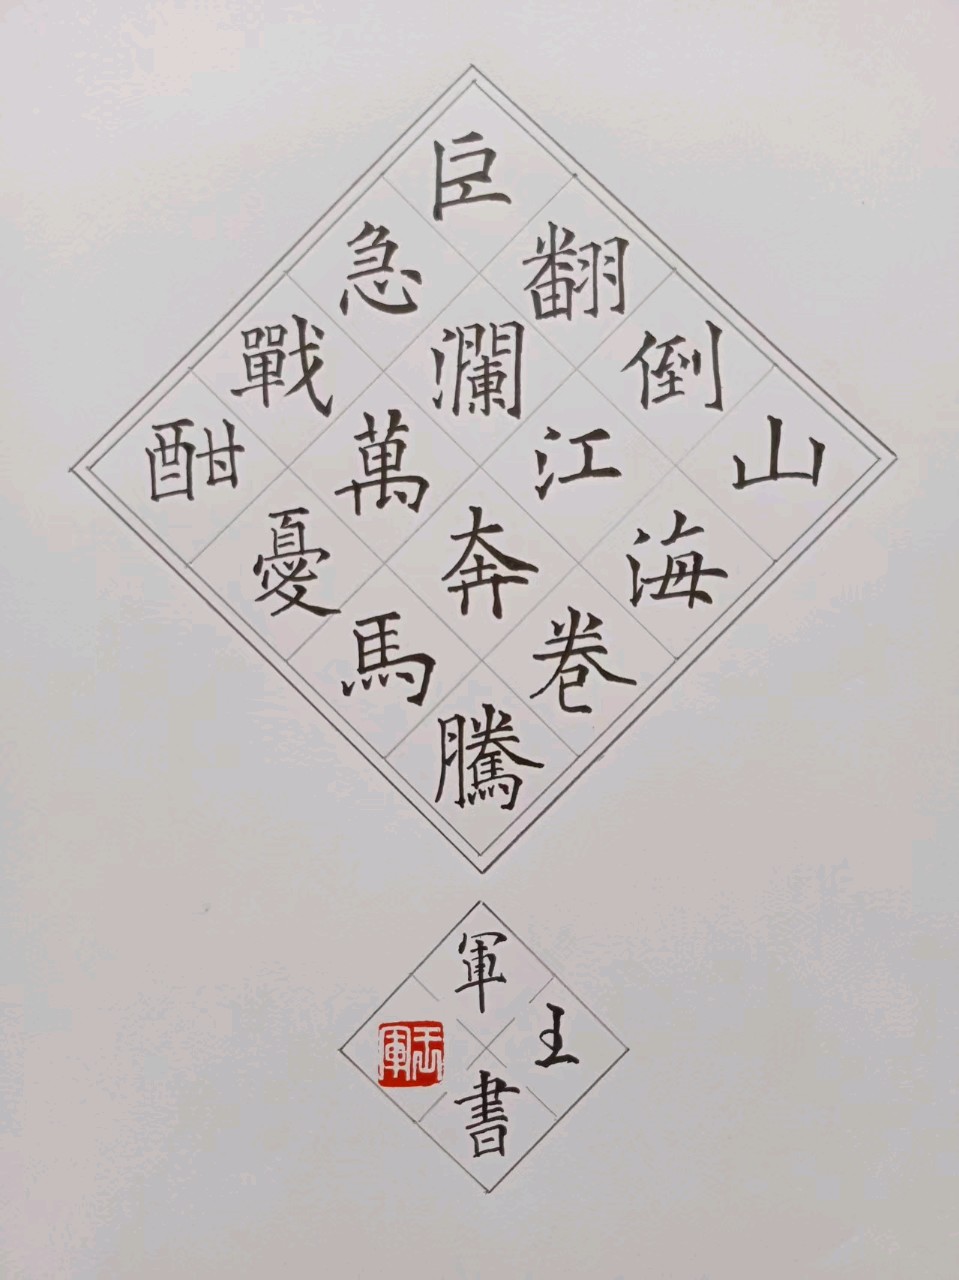 山
倒海
翻江卷
巨瀾奔騰
急萬馬
戰憂
酣
王
軍書
王軍